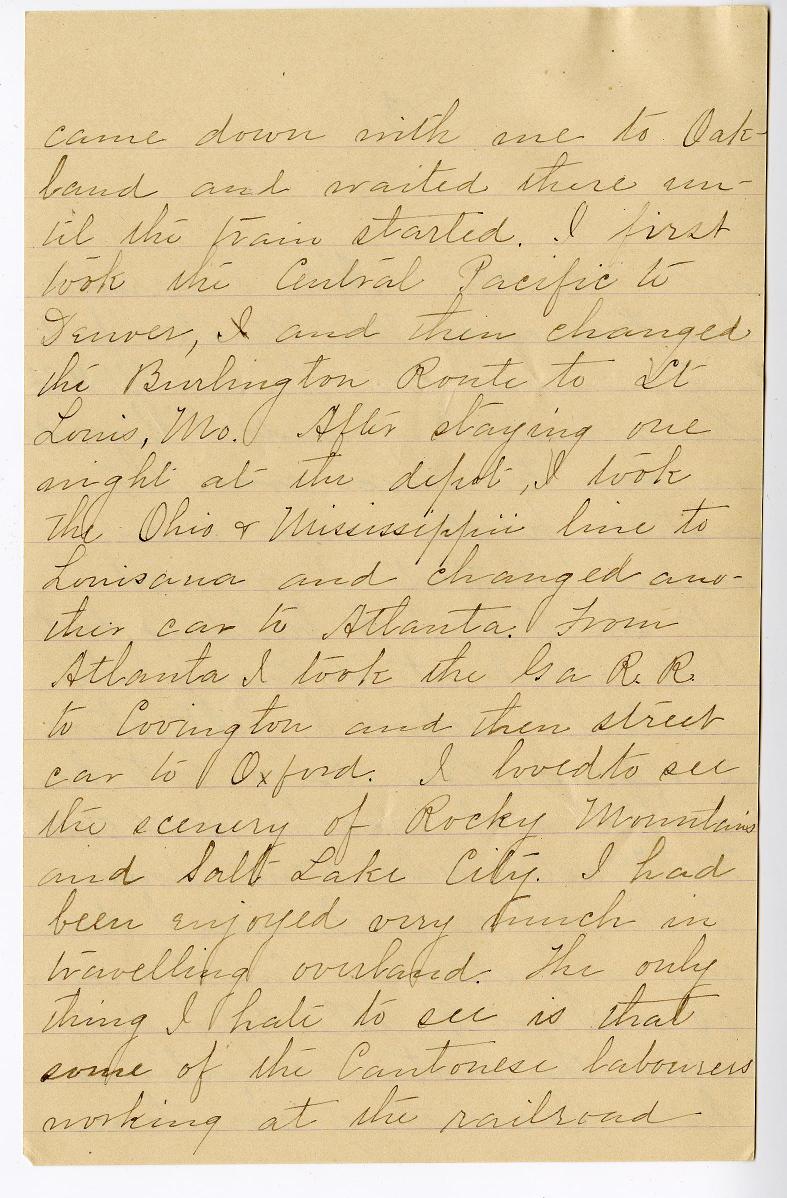 came down with me to Oak-
land and waited there un-
til the train started. I first
took the Central Pacific to
Denver, I and then changed
the Burlington Route to St
Louis, Mo. After staying one
night at the depot, I took
the Ohio & Mississippii line to
Louisana and changed ano-
ther car to Atlanta. From
Atlanta I took the Ga R. R.
to Covington and then street
car to Oxford. I loved to see
the scenery of Rocky Mountains
and Salt Lake City. I had
been enjoyed very much in
travelling overland. The only
thing I hate to see is that
some of the Cantonese labourers
working at the railroad